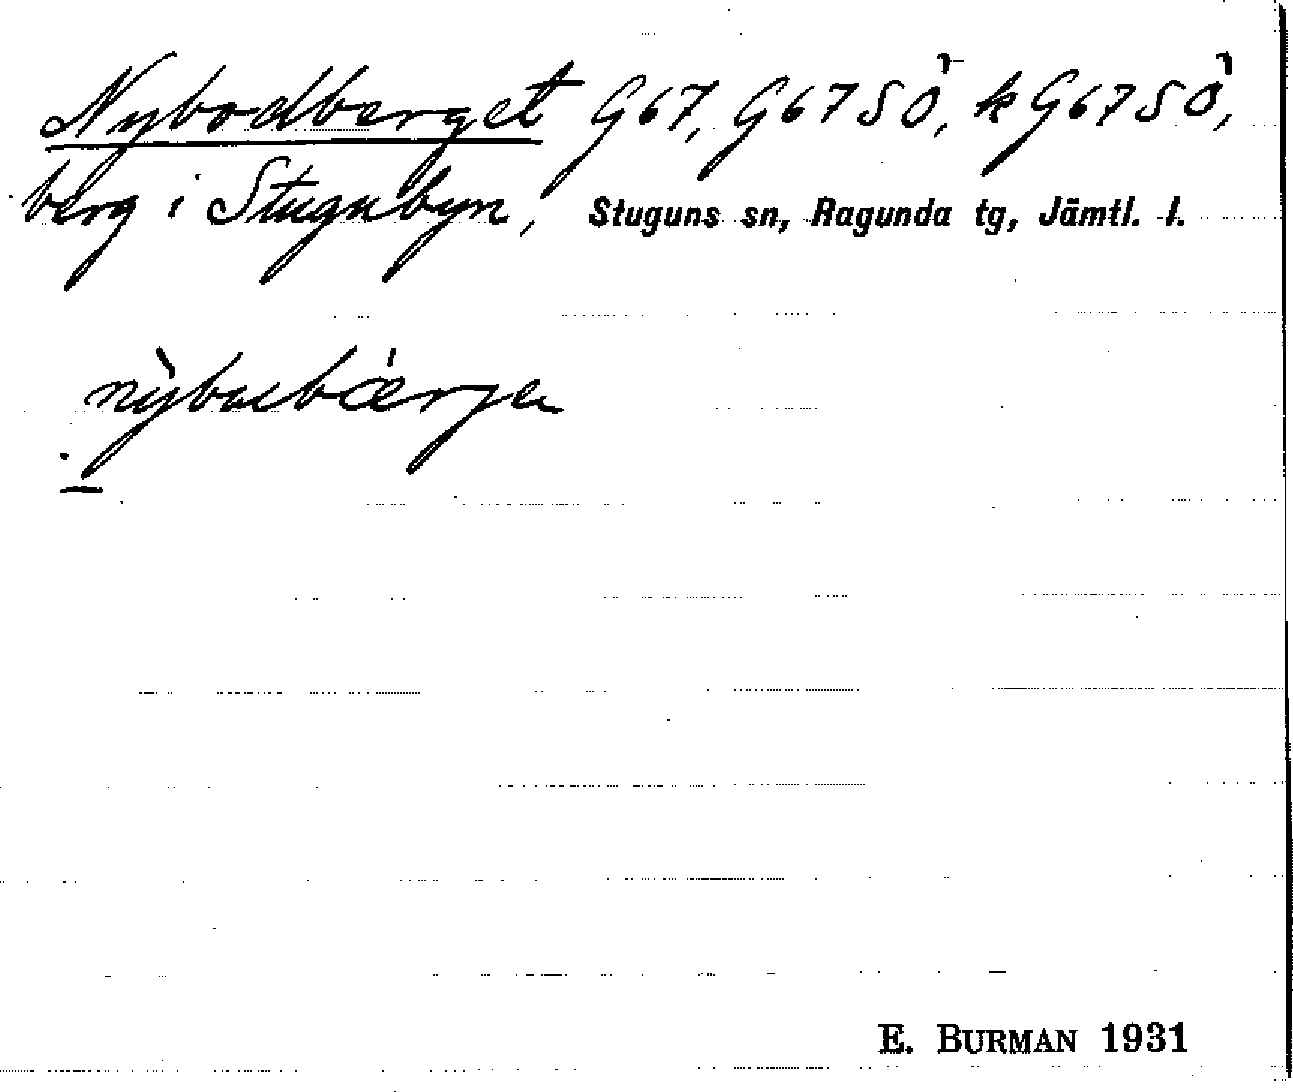 Nybodberget G67, G67SÖ, kG67SÖ,
berg i Stugubyn, Stuguns sn, Ragunda tg, Jämtl. l.
E. BURMAN 1931